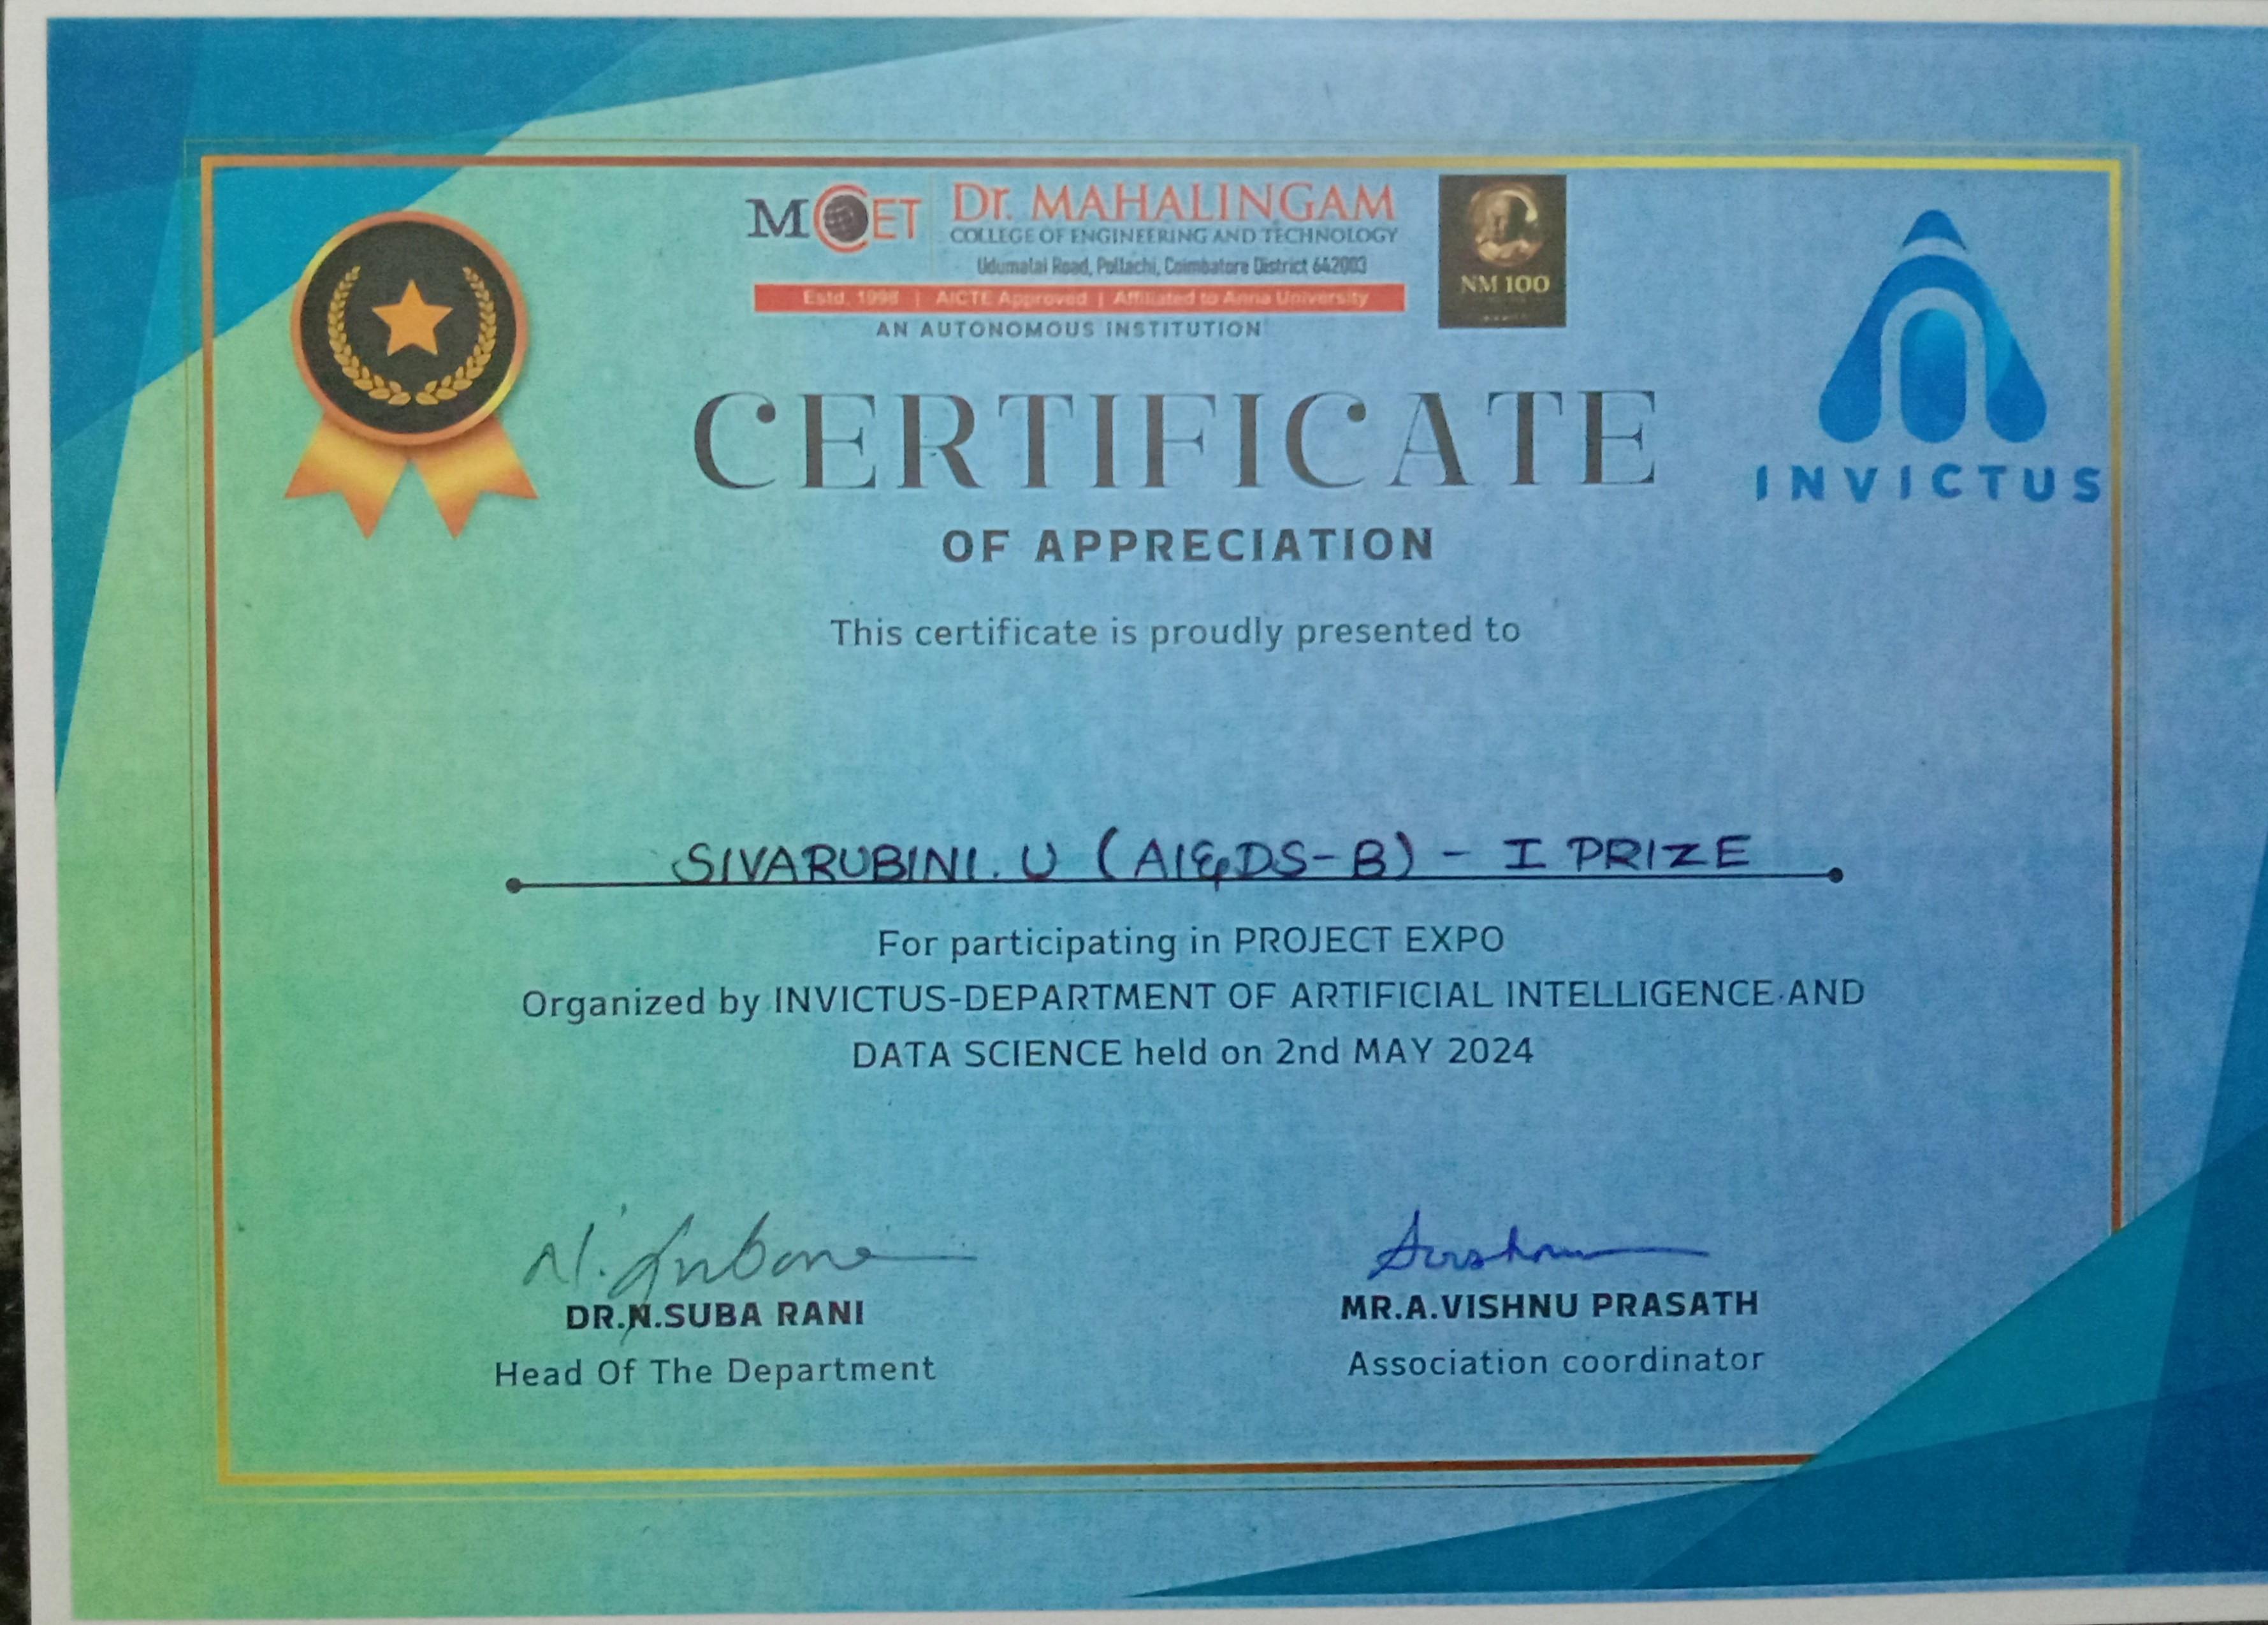 MCET Dr. MAHALINGAM
COLLEGE OF ENGINEERING AND TECHNOLOGY
Udumalai Road, Pollachi, Coimbatore District 642003
Estd. 1998 | AICTE Approved | Affiliated to Anna University
AN AUTONOMOUS INSTITUTION
NM 100
INVICTUS
CERTIFICATE
OF APPRECIATION
This certificate is proudly presented to
SIVARUBINI. U (AI&DS-B) - I PRIZE
For participating in PROJECT EXPO
Organized by INVICTUS-DEPARTMENT OF ARTIFICIAL INTELLIGENCE AND
DATA SCIENCE held on 2nd MAY 2024
DR.N.SUBA RANI
Head Of The Department
MR.A.VISHNU PRASATH
Association coordinator